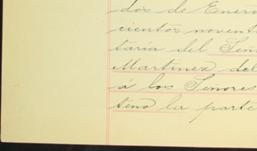 dor de Enero
cientos novent
taria del Señ
Martinez del
á los Señores
tend la parte